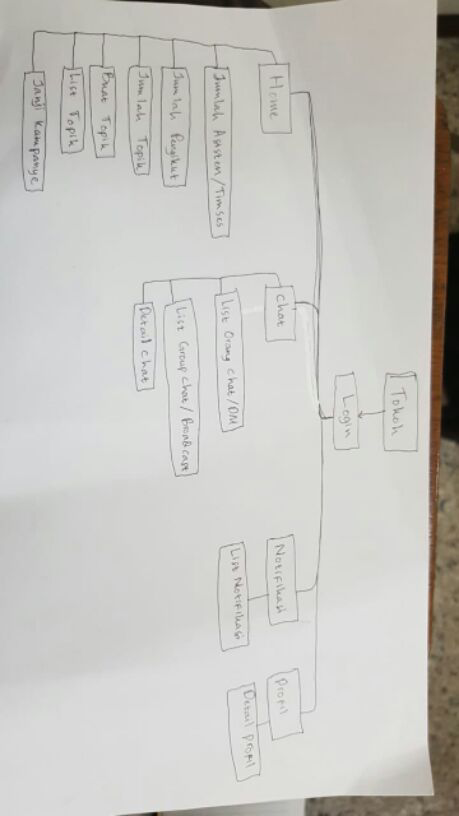 Tokoh
Login
Home
Jumlah Asisten/Timses
Jumlah Pengikut
Jumlah Topik
Buat Topik
List Topik
Janji Kampanye
Chat
List Orang Chat/DM
List Group Chat/Broadcast
Detail Chat
Notifikasi
List Notifikasi
Profil
Detail Profil